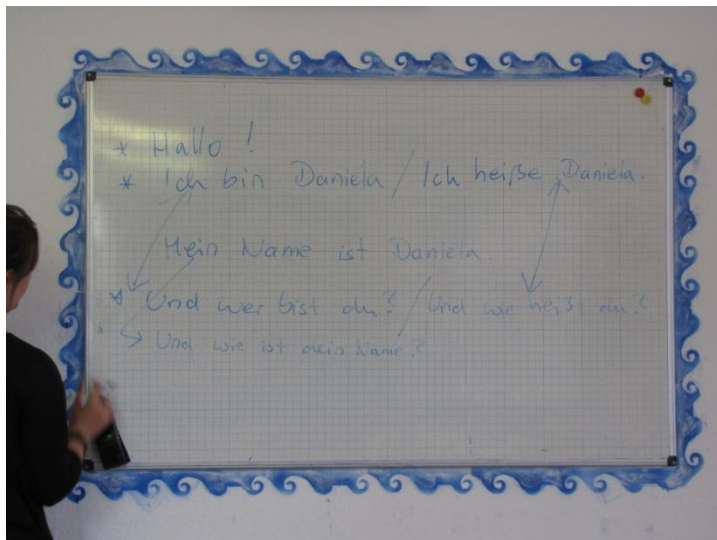 * Hallo !
* Ich bin Daniela / Ich heiße Daniela.
Mein Name ist Daniela.
* Und wer bist du? / Und wie heißt du?
* Und wie ist dein Name?